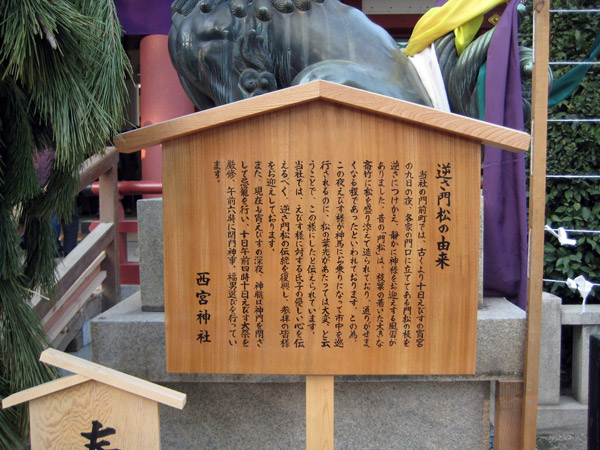 逆さ門松の由来
当社の門前町では、古くより十日えびすの宵宮
の九日の夜、各家の門口に立てある門松の枝を
逆さにつけかえ、静かに神様をお迎えする風習が
ありました。昔の「門松」は、枝葉の着いた大きな
高竹に松を盛り添えて造られており、通りがせま
くなる程であったといわれております。この為、
この夜えびす様が神馬にお乗りになって市中を巡
行されるのに、松の葉先があたっては大変、と云
うことで、この様にしたと伝えられています。
当社では、えびす様に対する氏子の優しい心を伝
えるべく、逆さ門松の伝統を復興し、参拝の皆様
をお迎えしております。
また、現在も宵えびすの深夜、神職は神門を閉ざ
して忌籠を行い、十日午前四時十日えびす大祭を
厳修、午前六時に開門神事、福男選びを行ってい
ます。
西宮神社
奉